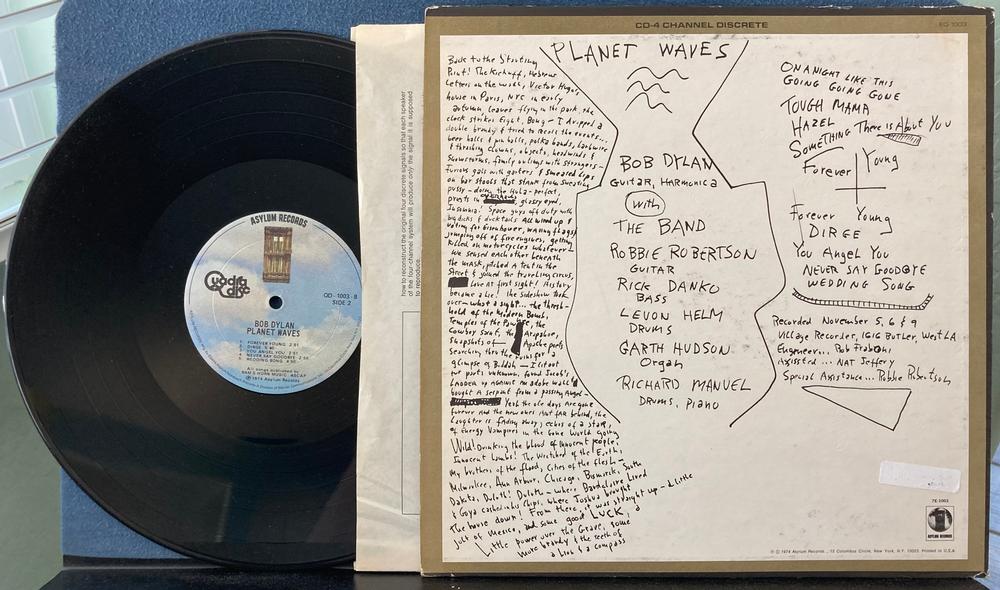 ASYLUM RECORDS
Quadra
Disc
QD-1003-B
SIDE 2
BOB DYLAN
PLANET WAVES
1. FOREVER YOUNG 2:51
2. DIRGE 5:40
3. YOU ANGEL YOU 2:51
4. NEVER SAY GOODBYE 2:50
5. WEDDING SONG
All songs published by
RAM'S HORN MUSIC ASCAP
℗ 1974 Asylum Records
how to reconstruct the original four discrete signals so that each speaker
of the four-channel system will produce only the signal it is supposed
to reproduce.
CD-4 CHANNEL DISCRETE
EQ 1003
Back to the Starting
Point! The Kickoff, Hebrew
Letters on the wall, Victor Hugo's
house in Paris, NYC in early
autumn, leaves flying in the park, the
clock strikes Eight, Bong - I dropped a
double brandy & tried to recall the events...
beer halls & pin balls, polka bands, barbwire
& thrashing clowns, objects, headwinds &
Snowstorms, family outings with strangers -
Furious gals with garters & smeared Lips
on bar stools that stank from sweating
pussy - doing the Hula - perfect,
priests in glassy eyed,
Insomnia! Space guys off duty with
big dicks & ducktails All wired up &
voting for Eisenhower, waving flags &
jumping off of fire engines, getting
killed on motorcycles whatever
We sensed each other beneath
the mask, pitched a tent in the
Street & joined the traveling circus,
Love at first sight! History
became a Lie! the sideshow took
over - what a sight... the thresh-
hold of the Modern Bomb,
Temples of the Pawnee, the
Cowboy saint, the Arapahoe,
snapshots of Apache poets
Searching thru the ruins for a
glimpse of Buddah - I lit out
for parts unknown, found Jacob's
Ladder up against an adobe wall &
bought a serpent from a passing Angel -
Yeah the ole days Are gone
forever And the new ones Aint far behind, the
Laughter is fading away, echos of a star,
of Energy Vampires in the Gone World going
Wild! Drinking the blood of innocent people,
Innocent Lambs! The Wretched of the Earth,
My brothers of the flood, Cities of the flesh -
Milwaukee, Ann Arbor, Chicago, Bismarck, South
Dakota, Duluth! Duluth - where Baudelaire Lived
& Goya cashed in his Chips, where Joshua brought
the house down! From there, it was straight up - a Little
jolt of Mexico, and some good LUCK, a
Little power over the Grave, some
more brandy & the teeth of
a Lion & a compass
PLANET WAVES
BOB DYLAN
GUITAR, HARMONICA
with
THE BAND
ROBBIE ROBERTSON
GUITAR
RICK DANKO
BASS
LEVON HELM
DRUMS
GARTH HUDSON
Organ
RICHARD MANUEL
DRUMS, PIANO
ON A NIGHT LIKE THIS
GOING GOING GONE
TOUGH MAMA
HAZEL
SOMETHING There is About You
Forever Young
Forever Young
DIRGE
You Angel You
NEVER SAY GOODBYE
WEDDING SONG
Recorded November 5, 6 & 9
Village Recorder, 1616 Butler, West LA
Engineer... Rob Fraboni
Assisted... NAT Jeffery
Special Assistance... Robbie Robertson
7E-1003
ASYLUM RECORDS
℗ © 1974 Asylum Records, 15 Columbus Circle, New York, N.Y. 10023. Printed in U.S.A.